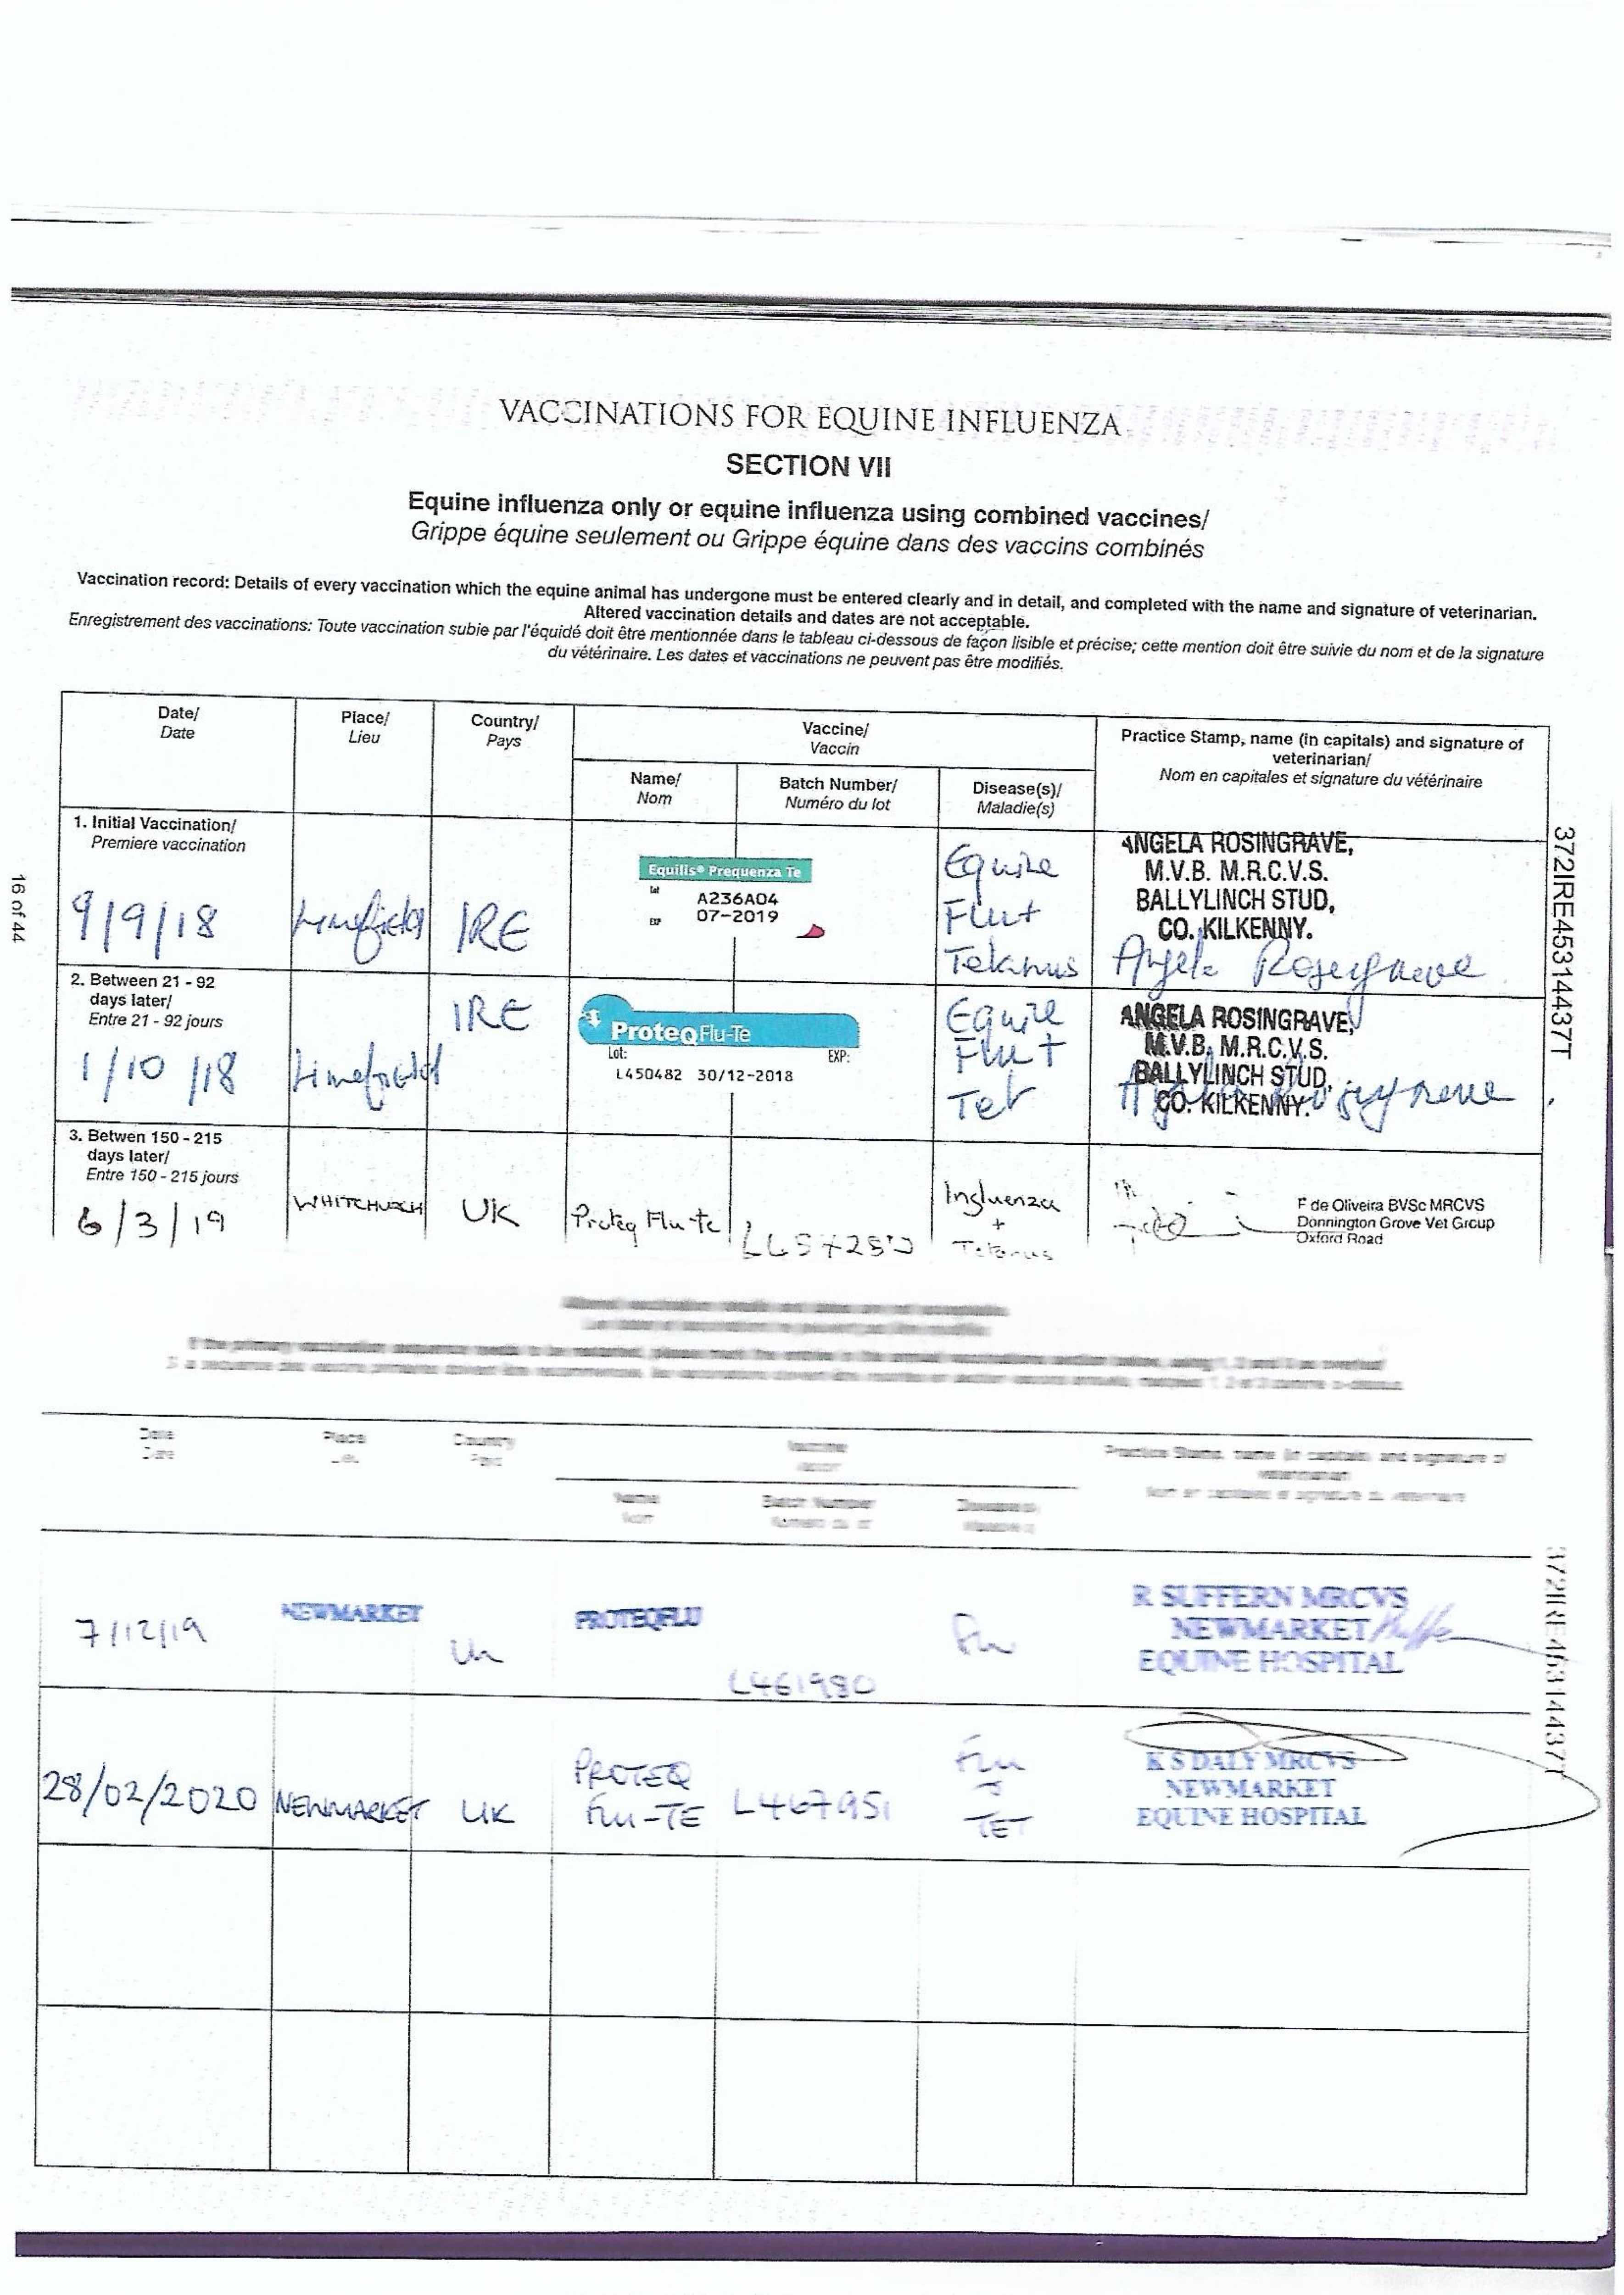 VACCINATIONS FOR EQUINE INFLUENZA
SECTION VII
Equine influenza only or equine influenza using combined vaccines/
Grippe équine seulement ou Grippe équine dans des vaccins combinés
Vaccination record: Details of every vaccination which the equine animal has undergone must be entered clearly and in detail, and completed with the name and signature of veterinarian.
Altered vaccination details and dates are not acceptable.
Enregistrement des vaccinations: Toute vaccination subie par l'équidé doit être mentionnée dans le tableau ci-dessous de façon lisible et précise; cette mention doit être suivie du nom et de la signature
du vétérinaire. Les dates et vaccinations ne peuvent pas être modifiés.
Date/
Date
Place/
Lieu
Country/
Pays
Vaccine/
Vaccin
Practice Stamp, name (in capitals) and signature of
veterinarian/
Nom en capitales et signature du vétérinaire
Name/
Nom
Batch Number/
Numéro du lot
Disease(s)/
Maladie(s)
1. Initial Vaccination/
Premiere vaccination
9/9/18
Limefield
IRE
Equilis® Prequenza Te
Lot
A236A04
EXP
07-2019
Equine
Flu+
Tetanus
ANGELA ROSINGRAVE,
M.V.B. M.R.C.V.S.
BALLYLINCH STUD,
CO. KILKENNY.
Angela Rosingrave
2. Between 21 - 92
days later/
Entre 21 - 92 jours
1/10/18
Limefield
IRE
ProteqFlu-Te
Lot:
EXP:
L450482 30/12-2018
Equine
Flu +
Tet
ANGELA ROSINGRAVE,
M.V.B. M.R.C.V.S.
BALLYLINCH STUD,
CO. KILKENNY.
3. Betwen 150 - 215
days later/
Entre 150 - 215 jours
6/3/19
WHITCHURCH
UK
Proteq Flu-te
Influenza
+
Tetanus
F de Oliveira BVSc MRCVS
Donnington Grove Vet Group
Oxford Road
16 of 44
372IRE45314437T
Altered vaccination details and dates are not acceptable.
If the primary vaccination sequence needs to be restarted, please mark the entries in the annual vaccinations section below, using 1, 2 and 3 as overleaf
Date
Date
Place
Country
Pays
Vaccine
Practice Stamp, name (in capitals) and signature of
veterinarian
Name
Nom
Batch Number
7/12/19
NEWMARKET
UK
PROTEQFLU
L461980
Flu
R SUFFERN MRCVS
NEWMARKET
EQUINE HOSPITAL
28/02/2020
NEWMARKET
UK
PROTEQ
FLU-TE
L467951
Flu
TET
K S DALY MRCVS
NEWMARKET
EQUINE HOSPITAL